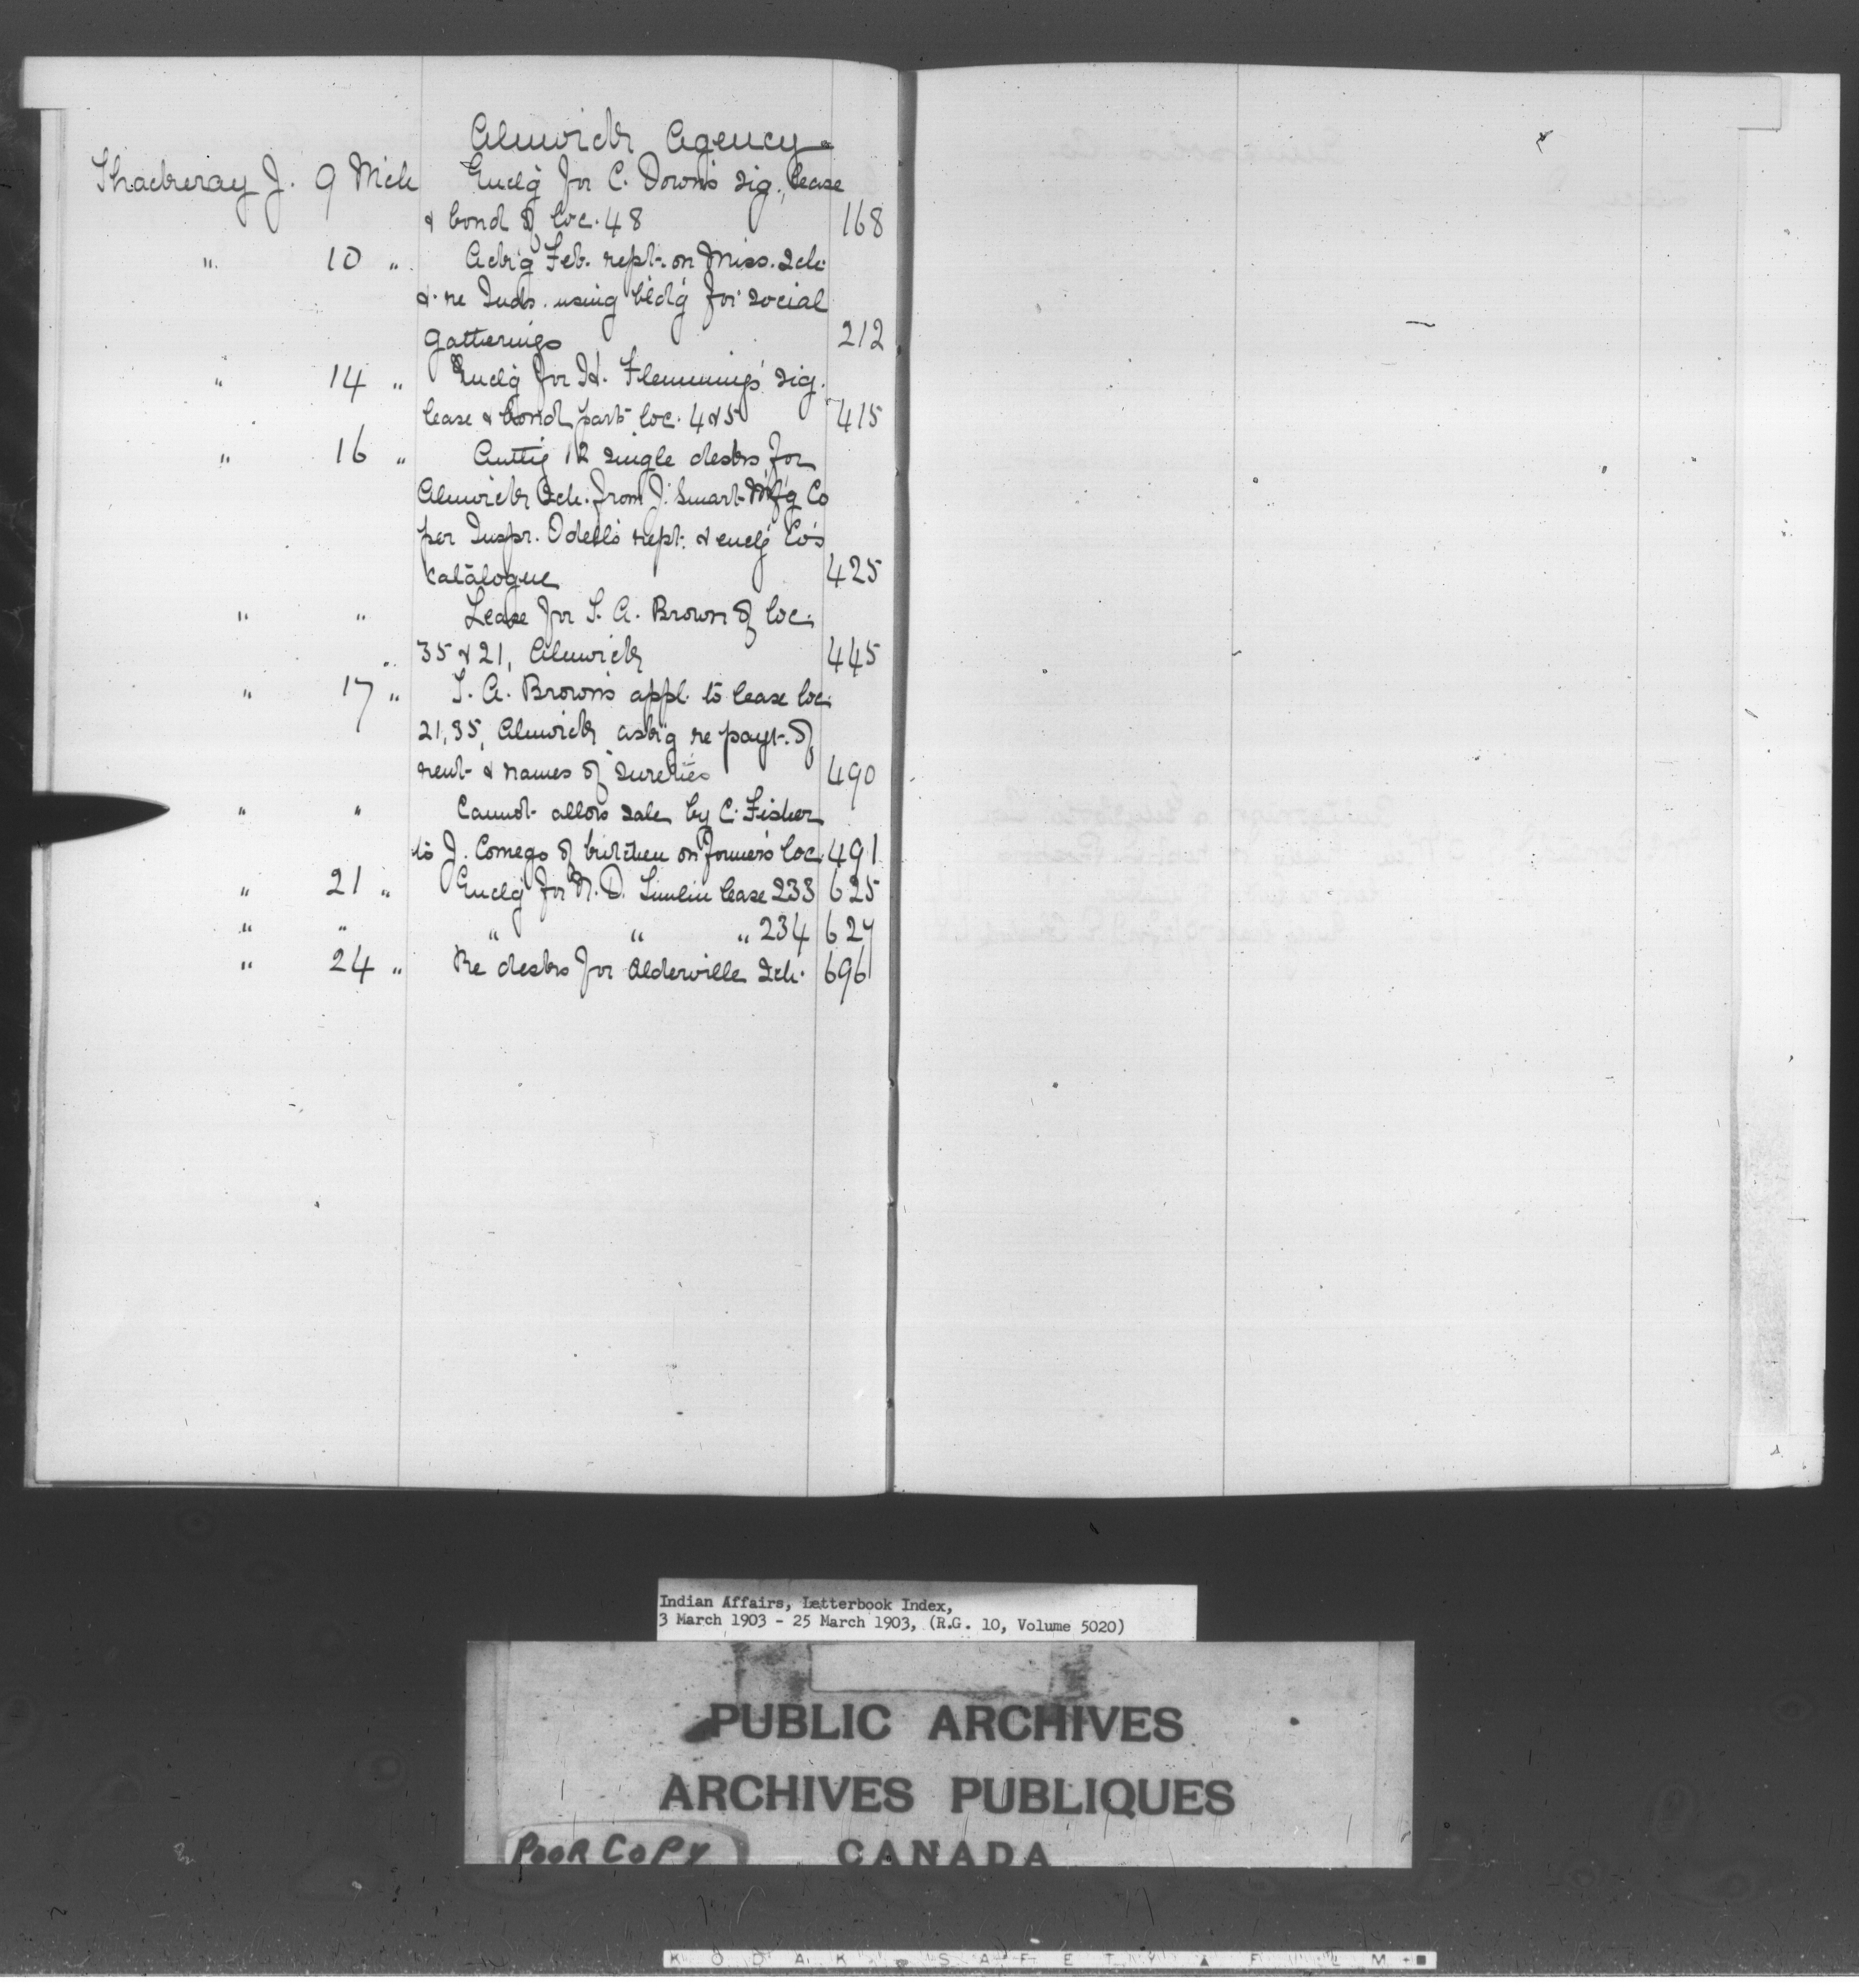 Alnwick Agency
Thackeray J. 9 Mch Enclg for C. Down's sig. lease
& bond of loc. 48 168
" 10 " Ackg Feb. rept. on Miss. Sch.
& re Inds. using bldg for social
gatherings 212
" 14 " Enclg for H. Flemming's sig.
lease & bond part loc. 4 & 5 415
" 16 " Auttg 12 single desks for
Alnwick Sch. from J. Smart Mfg Co
per Inspr. Odell's rept. & enclg Co's
Catalogue 425
" " Lease for S. A. Brown of loc.
35 & 21, Alnwick 445
" 17 " S. A. Brown's appl. to lease loc.
21, 35, Alnwick askg re payt. of
rent & names of sureties 490
" " Cannot allow sale by C. Fisher
to J. Comego of kitchen on former's loc. 491
" 21 " Enclg for N. D. lease 233 625
" " " " " 234 627
" 24 " Re desks for Alderville Sch. 696
Indian Affairs, Letterbook Index,
3 March 1903 - 25 March 1903, (R.G. 10, Volume 5020)
PUBLIC ARCHIVES
ARCHIVES PUBLIQUES
POOR COPY CANADA
KODAK SAFETY FILM